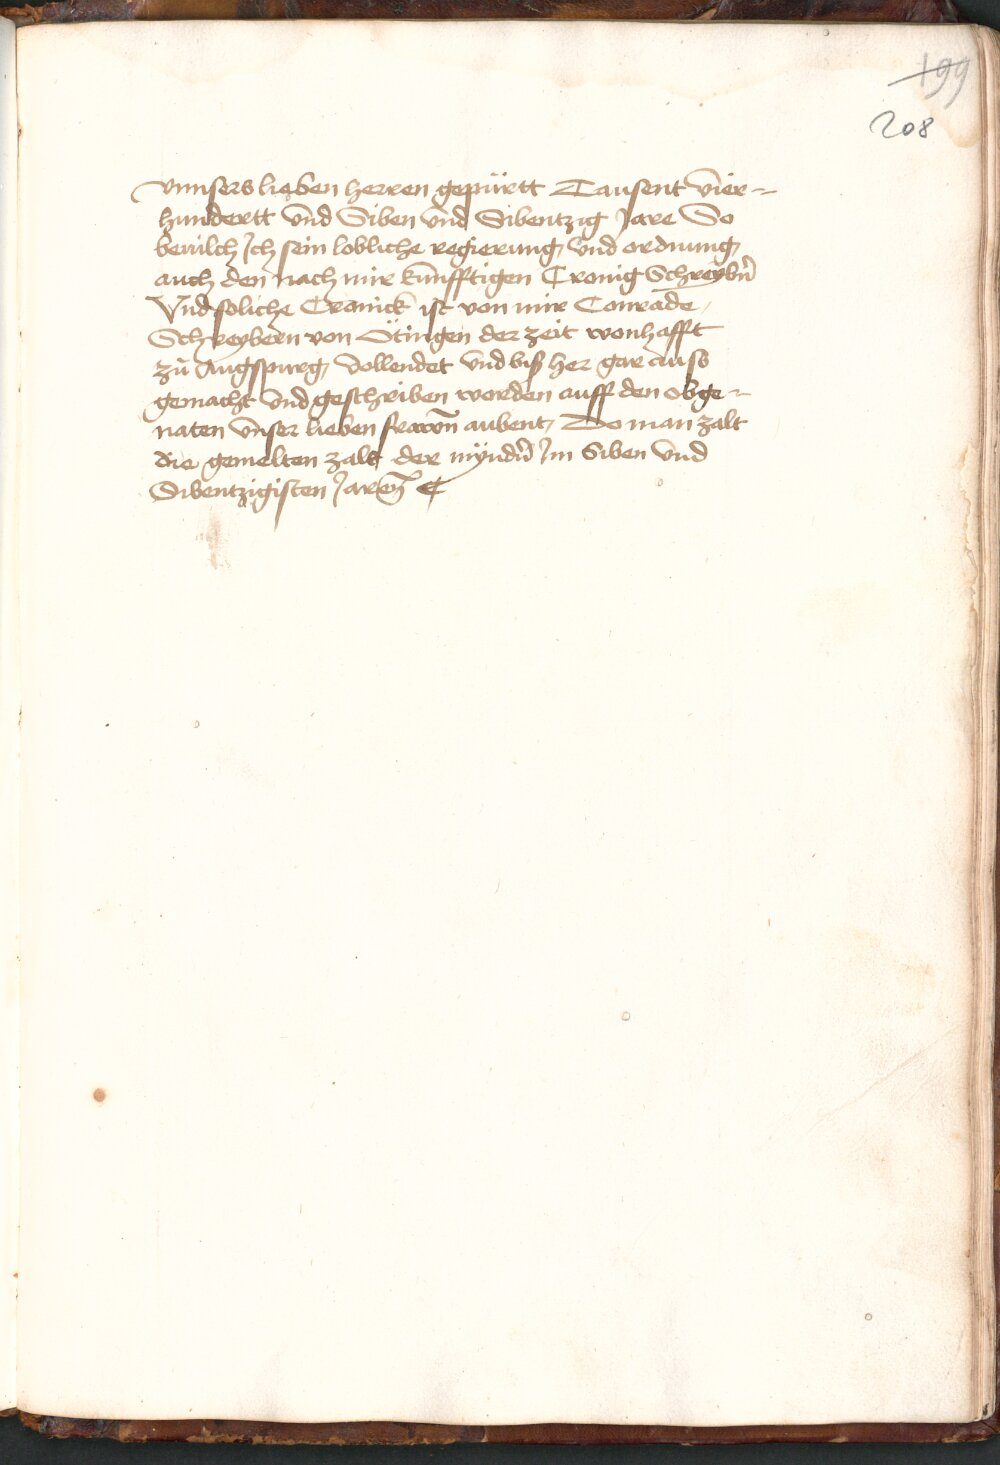 199
208
vnnsers lieben herren gepürtt Tausent vier-
hundertt vnd Siben vnd Sibentzig Jare So
beuilch Jch sein lobliche regierung vnd ordnung
auch den nach mir kunfftigen Cronig Schreybrn
Vnd soliche Cronick ist von mir Conrade
Schreybern von Ötingen der zeit wonhafft
zů Augspurg vollendet vnd biß her gar auss
gemacht vnd geschriben worden auff den obge-
naten vnser lieben frawen aubent, Do man zalt
die gemelten zale der myndrn Jm Siben vnd
Sibentzigisten Jaren